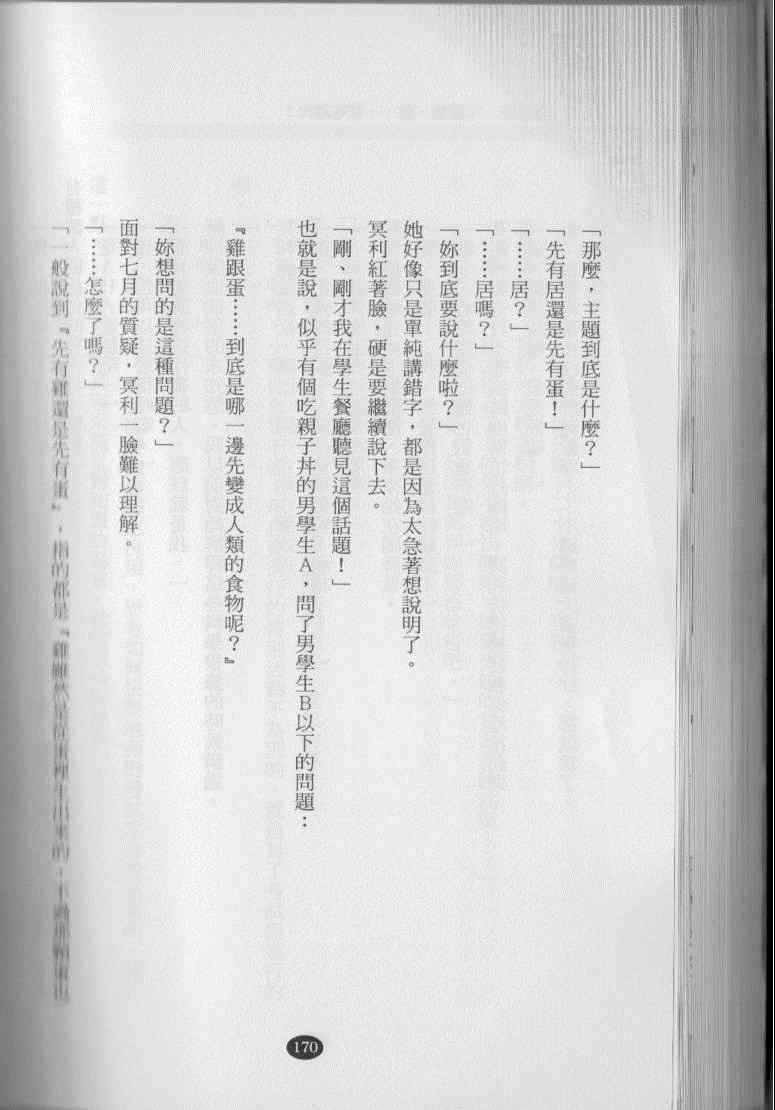 「那麼，主題到底是什麼？」
「先有居還是先有蛋！」
「……居？」
「……居嗎？」
「妳到底要說什麼啦？」
她好像只是單純講錯字，都是因為太急著想說明了。
冥利紅著臉，硬是要繼續說下去。
「剛、剛才我在學生餐廳聽見這個話題！」
也就是說，似乎有個吃親子丼的男學生Ａ，問了男學生Ｂ以下的問題：
『雞跟蛋……到底是哪一邊先變成人類的食物呢？』
「妳想問的是這種問題？」
面對七月的質疑，冥利一臉難以理解。
「……怎麼了嗎？」
「一般說到『先有雞還是先有蛋』，指的都是『雞雖然是從蛋裡生出來的，不過
170